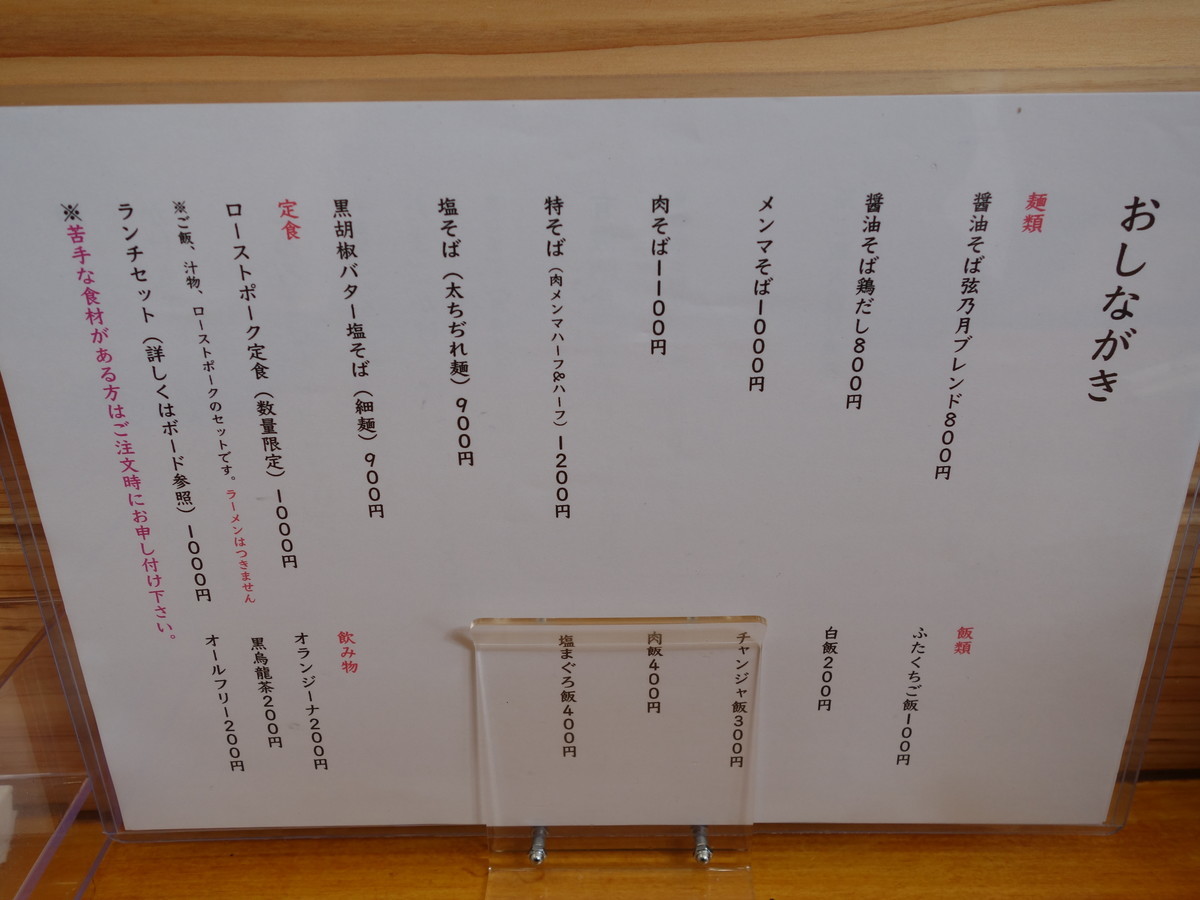 おしながき
麺類
醤油そば弦乃月ブレンド800円
醤油そば鶏だし800円
メンマそば1000円
肉そば1100円
特そば（肉メンマハーフ&ハーフ）1200円
塩そば（太ちぢれ麺）900円
黒胡椒バター塩そば（細麺）900円
定食
ローストポーク定食（数量限定）1000円
※ご飯、汁物、ローストポークのセットです。ラーメンはつきません
ランチセット（詳しくはボード参照）1000円
※苦手な食材がある方はご注文時にお申し付け下さい。
飯類
ふたくちご飯100円
白飯200円
チャンジャ飯300円
肉飯400円
塩まぐろ飯400円
飲み物
オランジーナ200円
黒烏龍茶200円
オールフリー200円